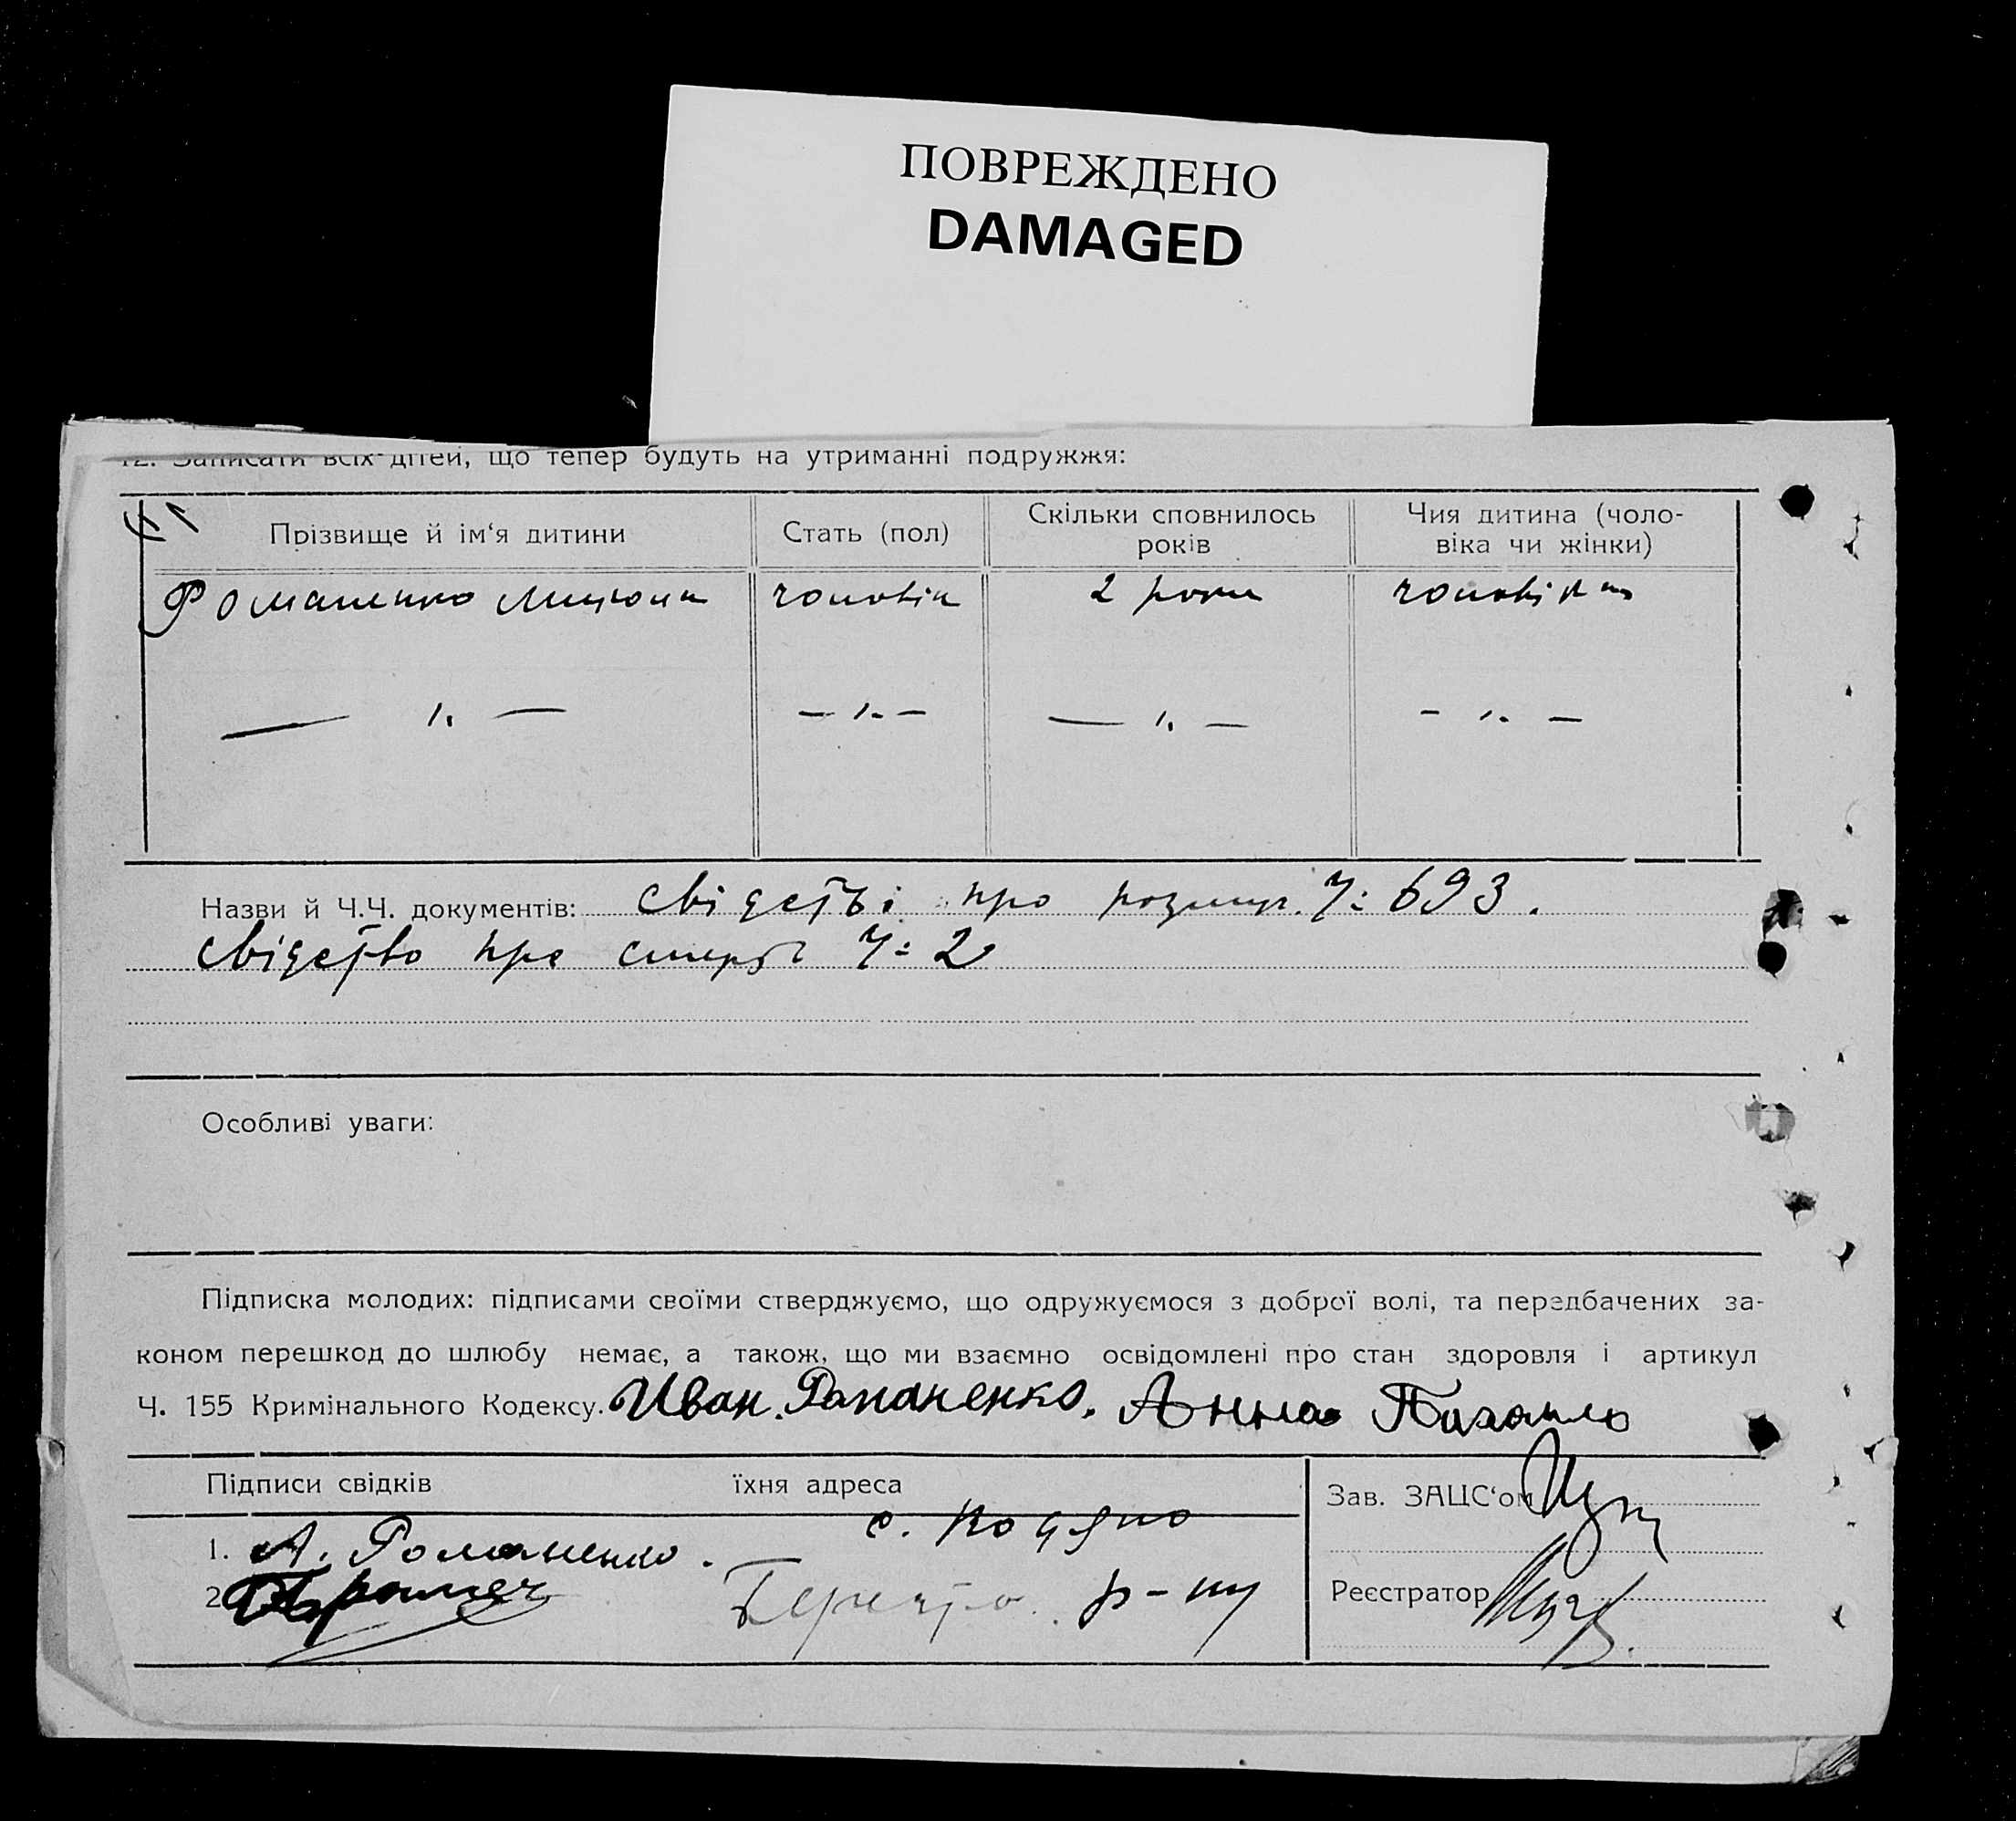 ПОВРЕЖДЕНО
DAMAGED
12. Записати всіх дітей, що тепер будуть на утриманні подружжя:
Прізвище й ім‘я дитини
Стать (пол)
Скільки сповнилось
років
Чия дитина (чоло-
віка чи жінки)
Романенко
чоловік
2 роки
чоловіка
Назви й Ч.Ч. документів: свідетві про Ч: 693.
свідетво про смерть Ч: 2
Особливі уваги:
Підписка молодих: підписами своїми стверджуємо, що одружуємося з доброї волі, та передбачених за-
коном перешкод до шлюбу немає, а також, що ми взаємно освідомлені про стан здоровля і артикул
Ч. 155 Кримінального Кодексу. Иван. Романенко. Анна
Підписи свідків
їхня адреса
Зав. ЗАЦС‘ом
1. А. Романенко.
с. Кодяно
2.
р-ну
Реєстратор